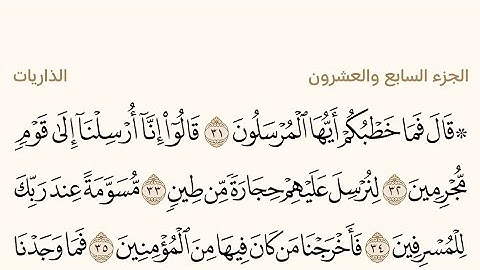 الجزء السابع والعشرون الذاريات
* قَالَ فَمَا خَطْبُكُمْ أَيُّهَا ٱلْمُرْسَلُونَ ٣١ قَالُوٓا۟ إِنَّآ أُرْسِلْنَآ إِلَىٰ قَوْمٍ
مُّجْرِمِينَ ٣٢ لِنُرْسِلَ عَلَيْهِمْ حِجَارَةً مِّن طِينٍ ٣٣ مُّسَوَّمَةً عِندَ رَبِّكَ
لِلْمُسْرِفِينَ ٣٤ فَأَخْرَجْنَا مَن كَانَ فِيهَا مِنَ ٱلْمُؤْمِنِينَ ٣٥ فَمَا وَجَدْنَا